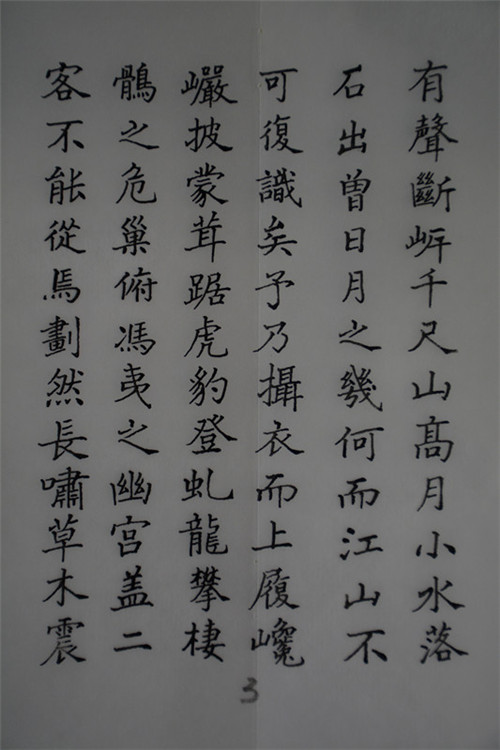 有聲斷峅千尺山髙月小水落
石出曽日月之幾何而江山不
可復識矣予乃攝衣而上履巉
巗披蒙茸踞虎豹登虬龍攀棲
鶻之危巢俯馮夷之幽宫盖二
客不能從焉劃然長嘯草木震
3